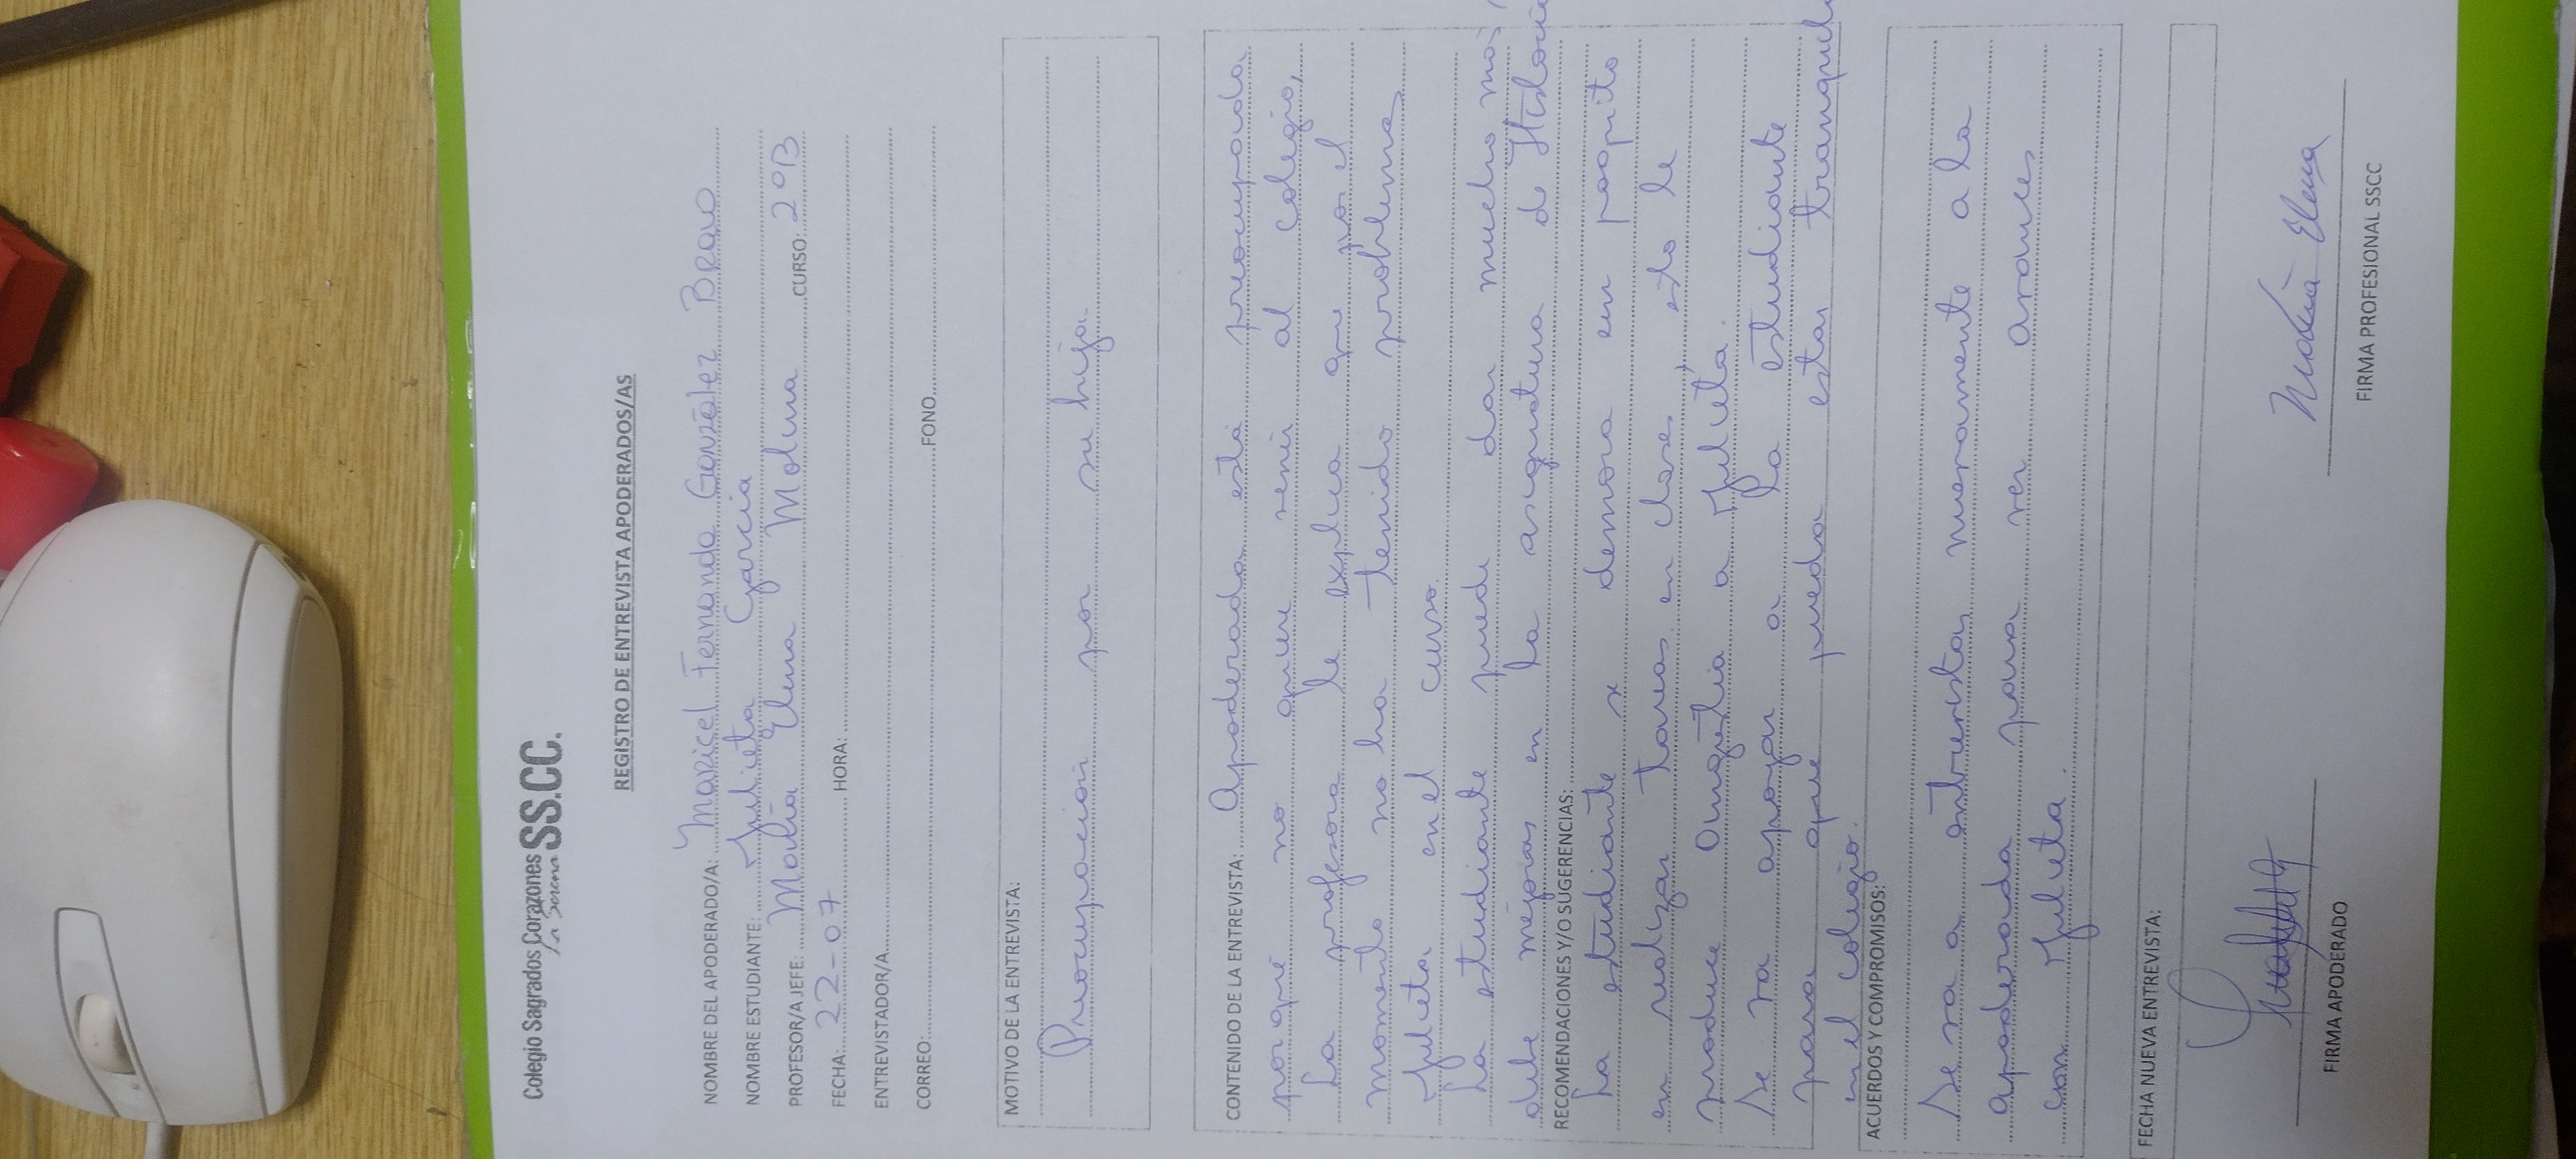 Colegio Sagrados Corazones SS.CC.
La Serena
REGISTRO DE ENTREVISTA APODERADOS/AS
NOMBRE DEL APODERADO/A: Maricel Fernanda González Bravo
NOMBRE ESTUDIANTE: Julieta García
PROFESOR/A JEFE: María Elena Molina CURSO: 2ºB
FECHA: 22-07 HORA:
ENTREVISTADOR/A
CORREO: FONO
MOTIVO DE LA ENTREVISTA:
Preocupación por su hija.
CONTENIDO DE LA ENTREVISTA: Apoderada está preocupada
porqué no quiere venir al colegio,
La profesora le explica que por el
momento no ha tenido problemas
Julieta en el curso.
La estudiante puede dar mucho más,
debe mejorar en la asignatura de Historia
RECOMENDACIONES Y/O SUGERENCIAS:
La estudiante se demora un poquito
en realizar tareas en clases, esto le
produce angustia a Julieta.
Se va apoyar a la estudiante
para que pueda estar tranquila
en el colegio.
ACUERDOS Y COMPROMISOS:
Se va a entrevistar nuevamente a la
apoderada para ver avances
con Julieta.
FECHA NUEVA ENTREVISTA:
María Elena
FIRMA APODERADO FIRMA PROFESIONAL SSCC